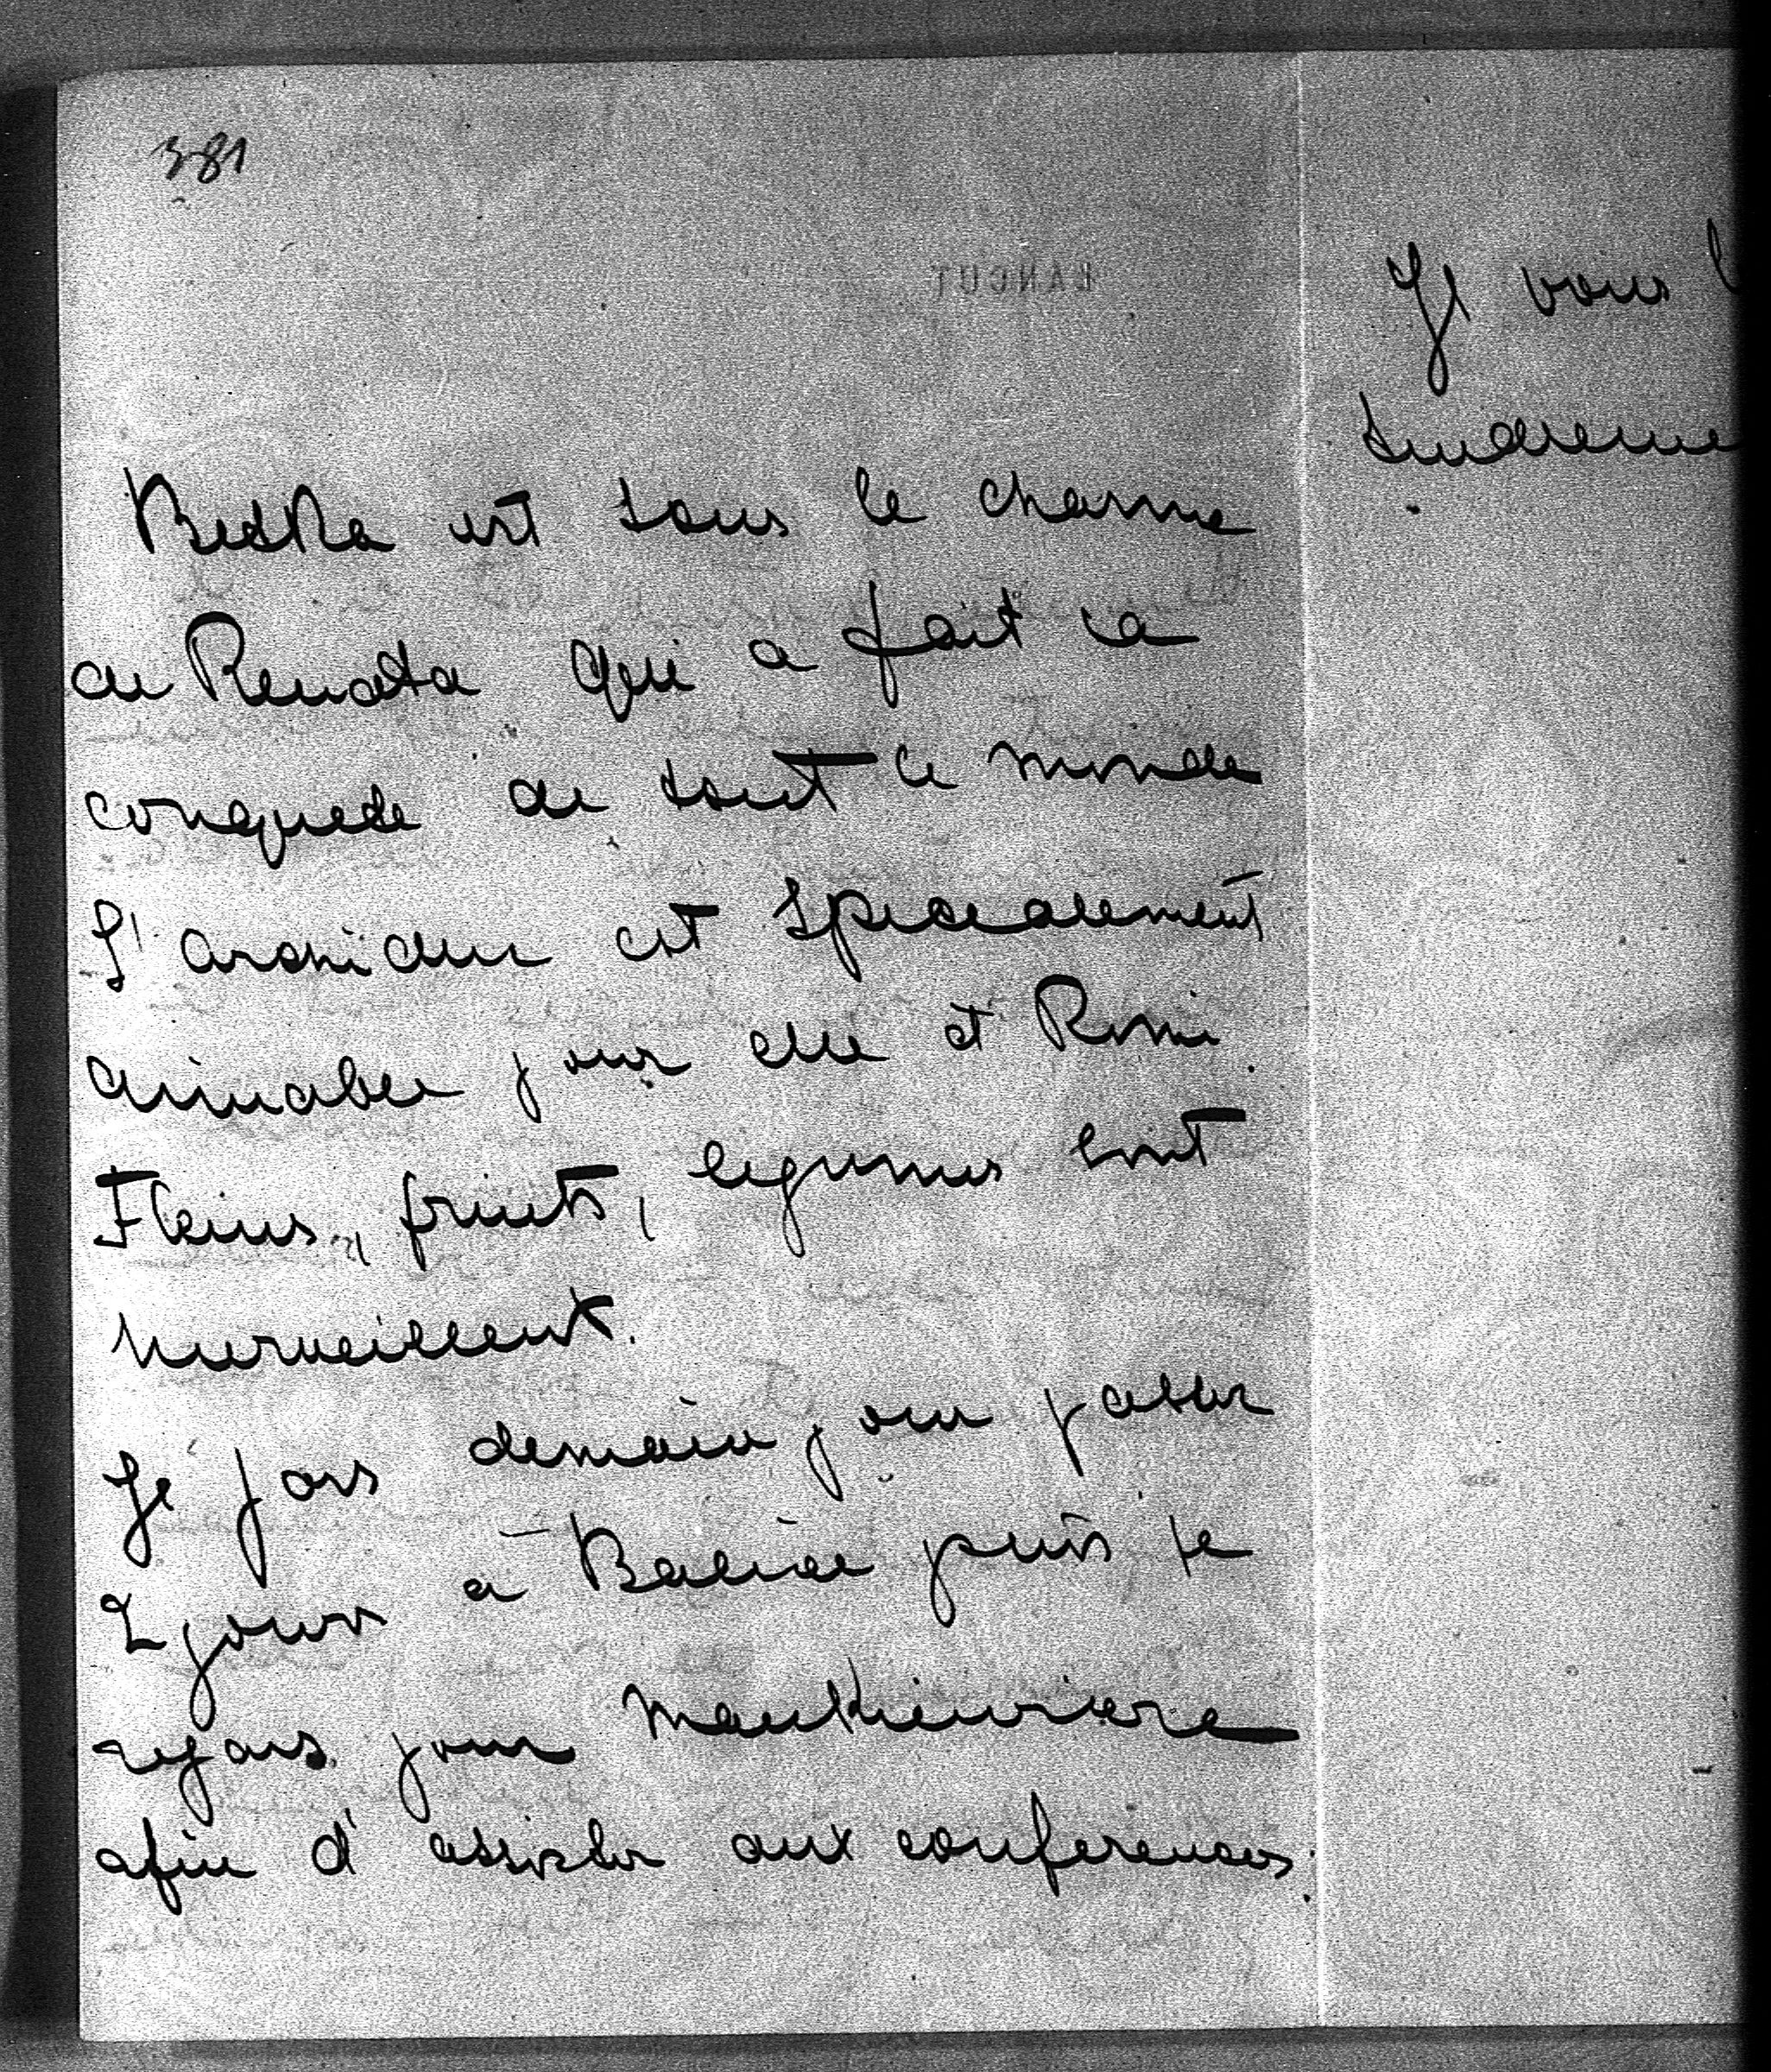 381
ŁANCUT
Betka est sous le charme
de Renata qui a fait la
conquete de tout le monde
L'archiduc est specialement
aimable pour elle et Romi.
Fleurs, fruits, legumes sont
merveilleux.
Je pars demain pour passer
2 jours à Balice puis je
repars pour
afin d'assister aux conferences.
Je vous
tendreme